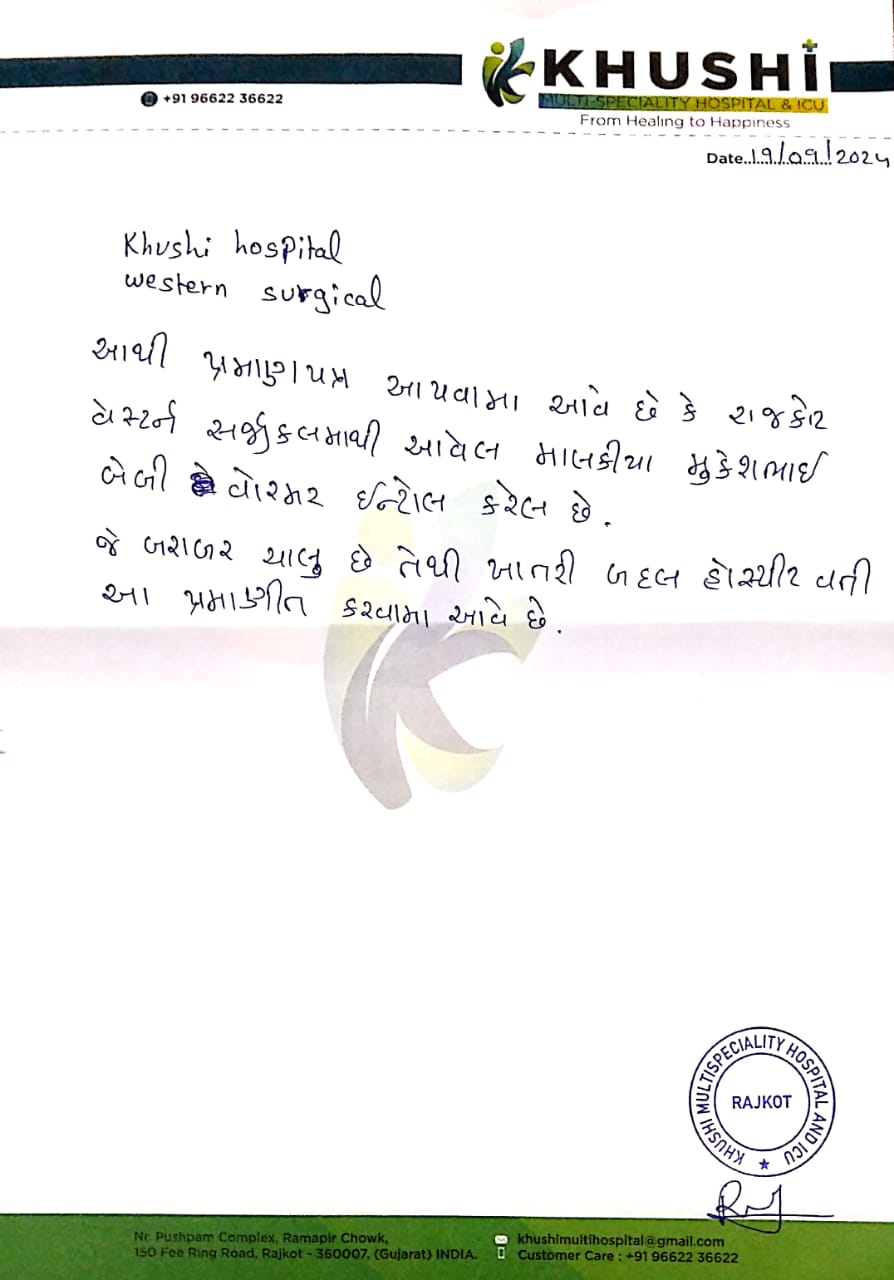 KHUSHi
MULTI-SPECIALITY HOSPITAL & ICU
From Healing to Happiness
+91 96622 36622
Date..19/09/2024
Khushi hospital
western surgical
આથી પ્રમાણપત્ર આપવામા આવે છે કે રાજકોટ
વેસ્ટર્ન સર્જીકલમાથી આવેલ માલકીયા મુકેશભાઈ
બેબી વોરમર ઈન્ટોલ કરેલ છે.
જે બરાબર ચાલુ છે તેથી ખાતરી બદલ હોસ્પીટ વતી
આ પ્રમાણીત કરવામા આવે છે.
KHUSHI MULTISPECIALITY HOSPITAL AND ICU
RAJKOT
Nr. Pushpam Complex, Ramapir Chowk,
150 Fee Ring Road, Rajkot - 360007. (Gujarat) INDIA.
khushimultihospital@gmail.com
Customer Care : +91 96622 36622